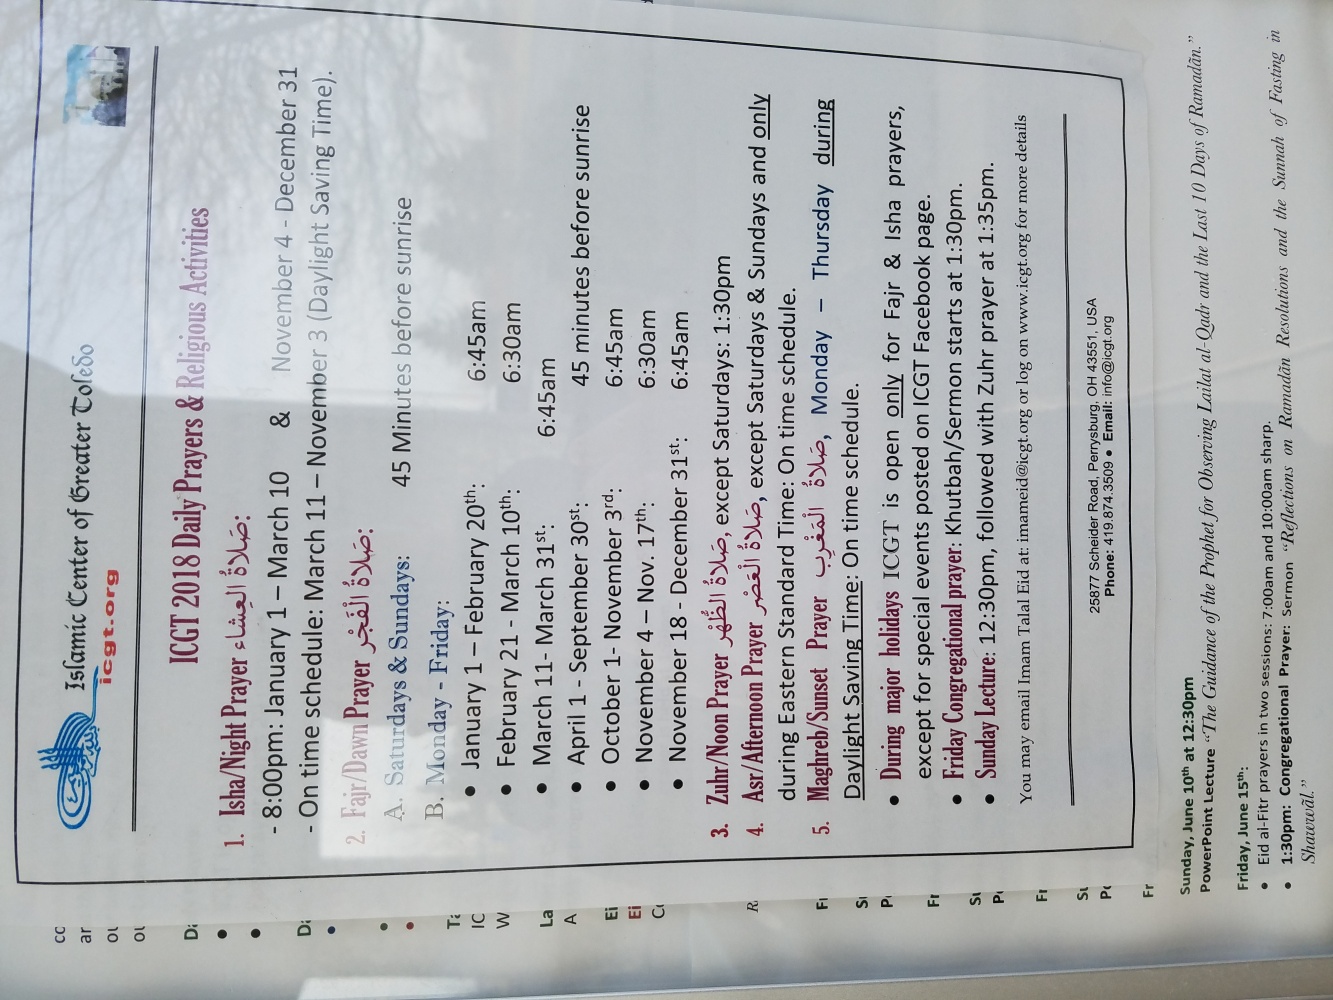 Islamic Center of Greater Toledo
icgt.org
ICGT 2018 Daily Prayers & Religious Activities
1. Isha/Night Prayer صَلَاةُ العِشَاء:
- 8:00pm: January 1 – March 10 & November 4 - December 31
- On time schedule: March 11 – November 3 (Daylight Saving Time).
2. Fajr/Dawn Prayer صَلَاةُ الْفَجْر:
A. Saturdays & Sundays: 45 Minutes before sunrise
B. Monday - Friday:
• January 1 – February 20th: 6:45am
• February 21 - March 10th: 6:30am
• March 11- March 31st: 6:45am
• April 1 - September 30st: 45 minutes before sunrise
• October 1- November 3rd: 6:45am
• November 4 – Nov. 17th: 6:30am
• November 18 - December 31st: 6:45am
3. Zuhr/Noon Prayer صَلَاةُ الظُّهْر, except Saturdays: 1:30pm
4. Asr/Afternoon Prayer صَلَاةُ الْعَصْر, except Saturdays & Sundays and only
during Eastern Standard Time: On time schedule.
5. Maghreb/Sunset Prayer صَلَاةُ الْمَغْرِب, Monday – Thursday during
Daylight Saving Time: On time schedule.
• During major holidays ICGT is open only for Fajr & Isha prayers,
except for special events posted on ICGT Facebook page.
• Friday Congregational prayer: Khutbah/Sermon starts at 1:30pm.
• Sunday Lecture: 12:30pm, followed with Zuhr prayer at 1:35pm.
You may email Imam Talal Eid at: imameid@icgt.org or log on www.icgt.org for more details
25877 Scheider Road, Perrysburg, OH 43551, USA
Phone: 419.874.3509 ● Email: info@icgt.org
Sunday, June 10th at 12:30pm
PowerPoint Lecture "The Guidance of the Prophet for Observing Lailat al-Qadr and the Last 10 Days of Ramadān."
Friday, June 15th:
• Eid al-Fitr prayers in two sessions: 7:00am and 10:00am sharp.
• 1:30pm: Congregational Prayer: Sermon "Reflections on Ramadān Resolutions and the Sunnah of Fasting in
Shawwāl."